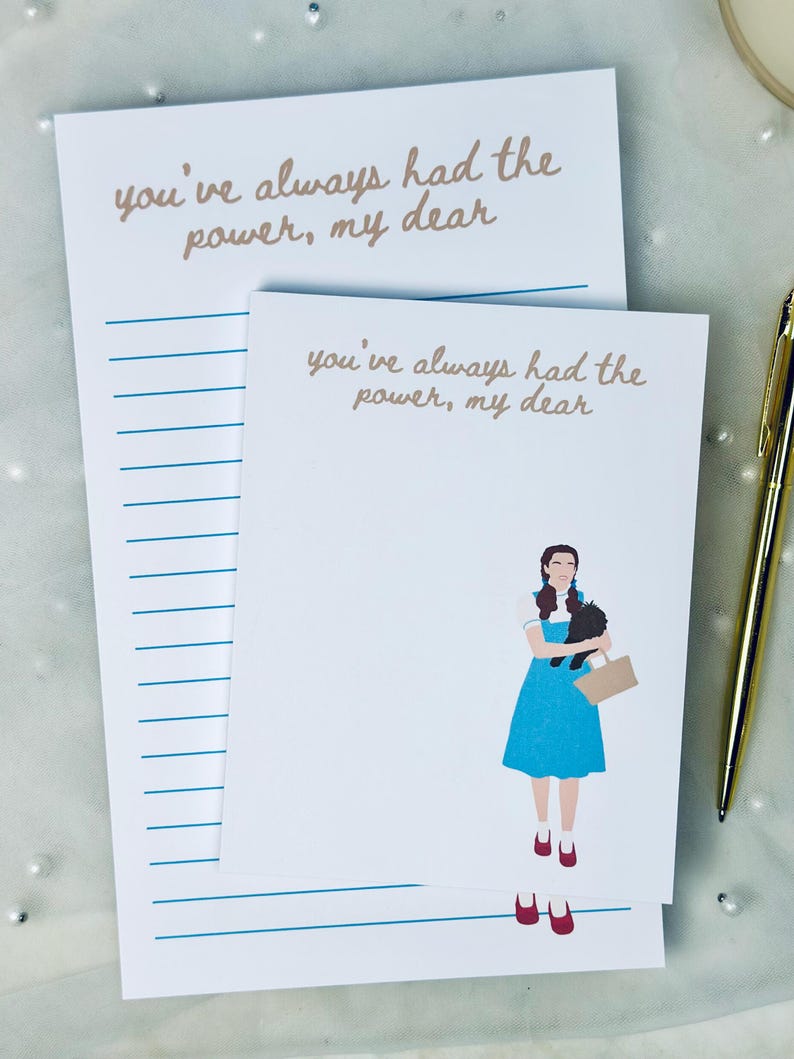 you've always had the
power, my dear
you've always had the
power, my dear